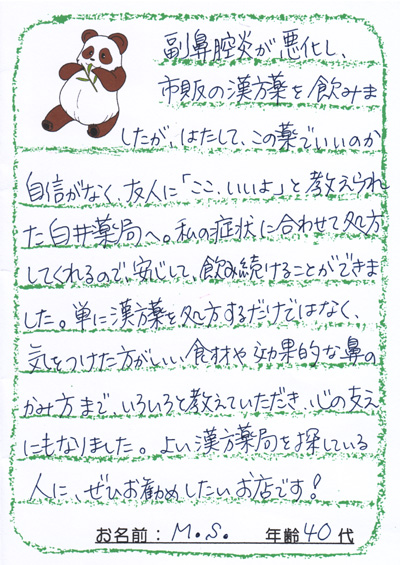 副鼻腔炎が悪化し、
市販の漢方薬を飲みま
したが、はたして、この薬でいいのか
自信がなく、友人に「ここ、いいよ」と教えられ
た白井薬局へ。私の症状に合わせて処方
してくれるので、安心して、飲み続けることができま
した。単に漢方薬を処方するだけではなく、
気をつけた方がいい、食材や効果的な鼻の
かみ方まで、いろいろと教えていただき、心の支え
にもなりました。よい漢方薬局を探している
人に、ぜひお勧めしたいお店です!
お名前:M.S. 年齢40代